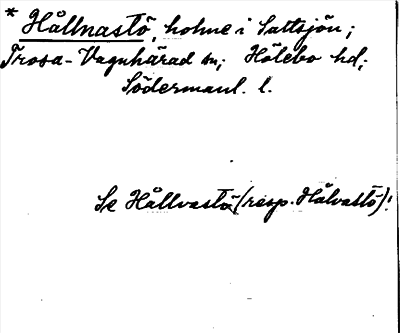 * Hållnastö, holme i Sattsjön;
Trosa-Vagnhärad sn; Hölebo hd;
Södermanl. l.
Se Hållvastö (resp. Hålvastö)!